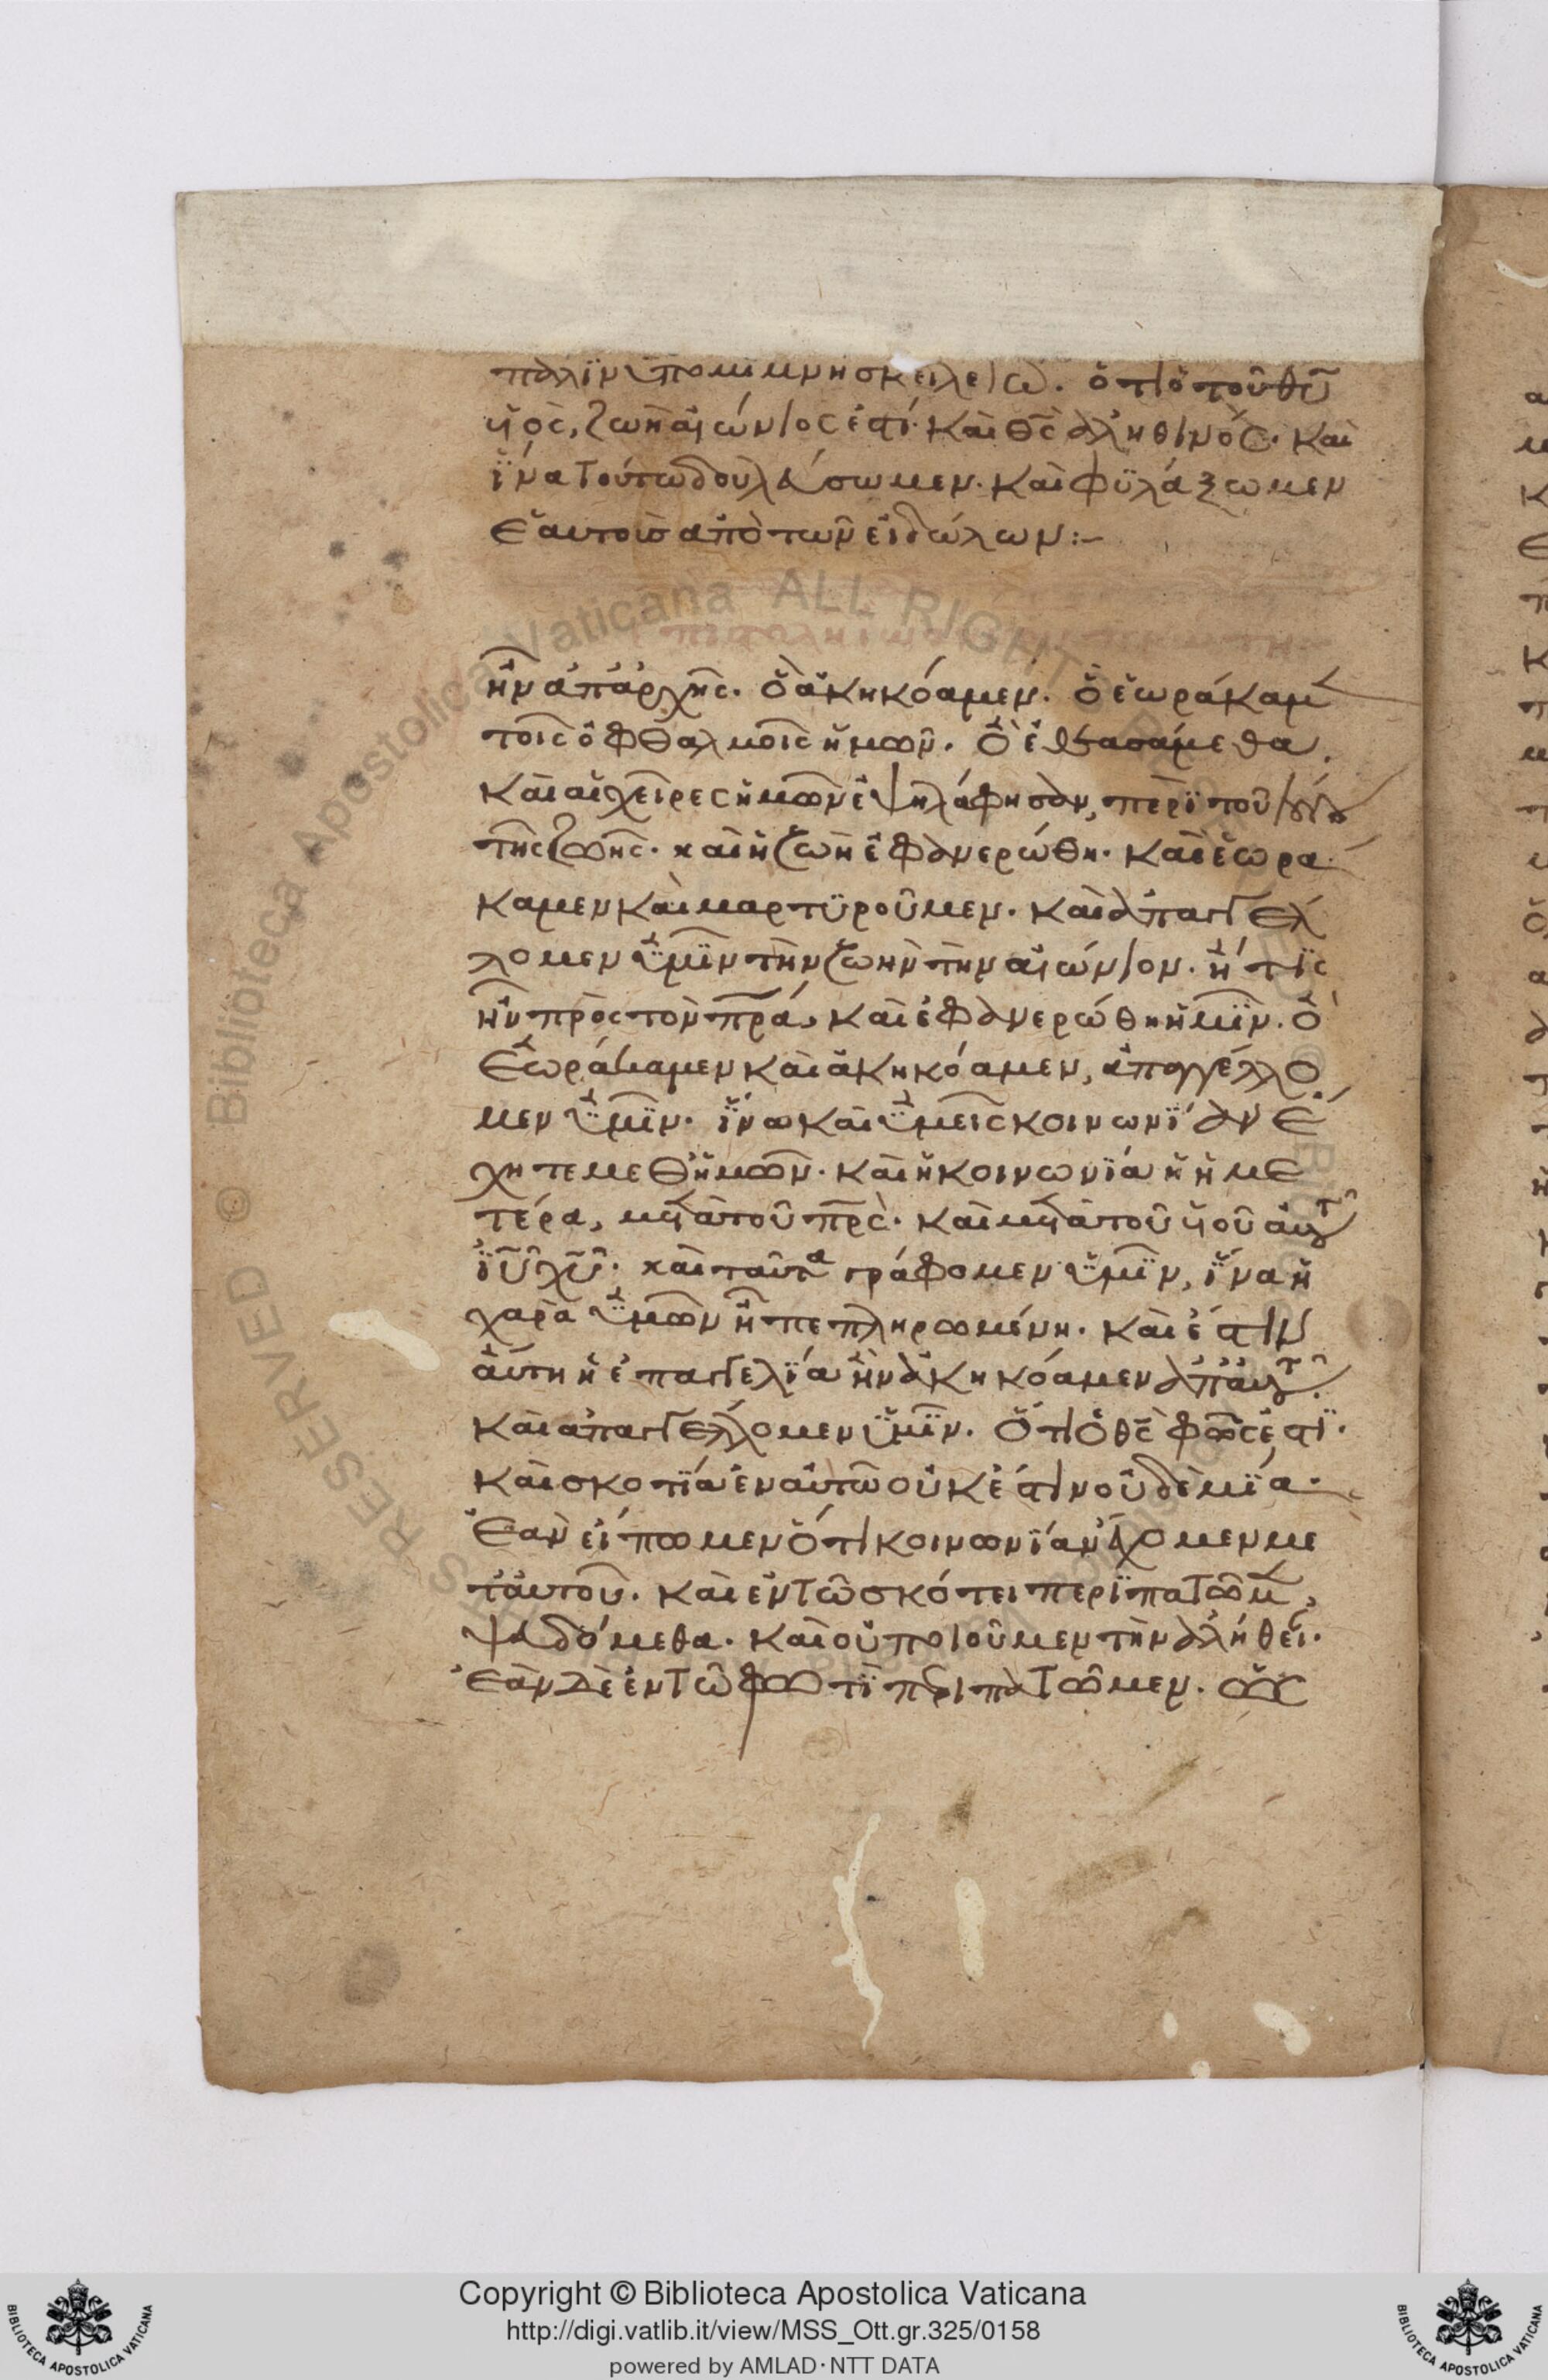 πάλιν ὑπομιμνήσκει λέγων. ὅτι ὁ τοῦ θῦ
ϋἱὸς, ζωὴ αἰώνιος ἐστί· καὶ θς ἀληθινός. καὶ
ἵνα τούτω δουλεύσωμεν. καὶ φϋλάξωμεν
ἑαυτοὺσ ἀπὸ τῶν εἰδώλων:-
ἦν ἀπ ἀρχῆς. ὃ ἀκηκόαμεν. ὃ ἑωράκαμεν
τοῖς ὀφθαλμοῖς ἡμῶν. ὃ ἐθεασάμεθα.
καὶ αἱ χεῖρες ἡμῶν ἐψηλάφησαν, περῒ τοῦ λόγου
τῆς ζωῆς. καὶ ἡ ζωὴ ἐφανερώθη. καὶ ἑωρα
καμεν καὶ μαρτϋροῦμεν. καὶ ἀπαγγέλ
λομεν ὑμῖν τὴν ζωὴν τὴν αἰώνιον. ἥτϊς
ἦν πρὸς τὸν πρα, καὶ ἐφανερώθη ἡμῖν. ὃ
ἑωράκαμεν καὶ ἀκηκόαμεν, ἀπαγγέλλο
μεν ὑμῖν. ἵνα καὶ ὑμεῖς κοινωνίαν ἔ
χητε μεθ ἡμῶν. καὶ ἡ κοινωνϊα ἡ ἡμε
τέρα, μετὰ τοῦ πρς. καὶ μετὰ τοῦ υἱοῦ αὐτοῦ
ιυ χυ. καὶ ταῦτα γράφομεν ὑμῖν, ἵνα ἡ
χαρὰ ὑμῶν ἦ πεπληρωμένη. καὶ ἔστιν
αὕτη ἡ ἐπαγγελϊα ἣν ἀκηκόαμεν ἀπ αὐτοῦ.
καὶ ἀπαγγέλλομεν ὑμῖν. ὅτι ὁ θς φῶς ἐστϊ.
καὶ σκοτϊα ἐν αὐτῶ οὐκ ἔστιν οὐδεμϊα.
ἐὰν εἴπωμεν ὅτι κοινωνίαν ἔχομεν με
τ αὐτοῦ. καὶ ἐν τῶ σκότει περϊπατῶμεν,
ψευδόμεθα. καὶ οὐ ποιοῦμεν τὴν ἀλήθει.
ἐὰν δὲ ἐν τῶ φωτῒ περιπατῶμεν. ὡς
Copyright © Biblioteca Apostolica Vaticana
http://digi.vatlib.it/view/MSS_Ott.gr.325/0158
powered by AMLAD·NTT DATA
BIBLIOTECA APOSTOLICA VATICANA
BIBLIOTECA APOSTOLICA VATICANA